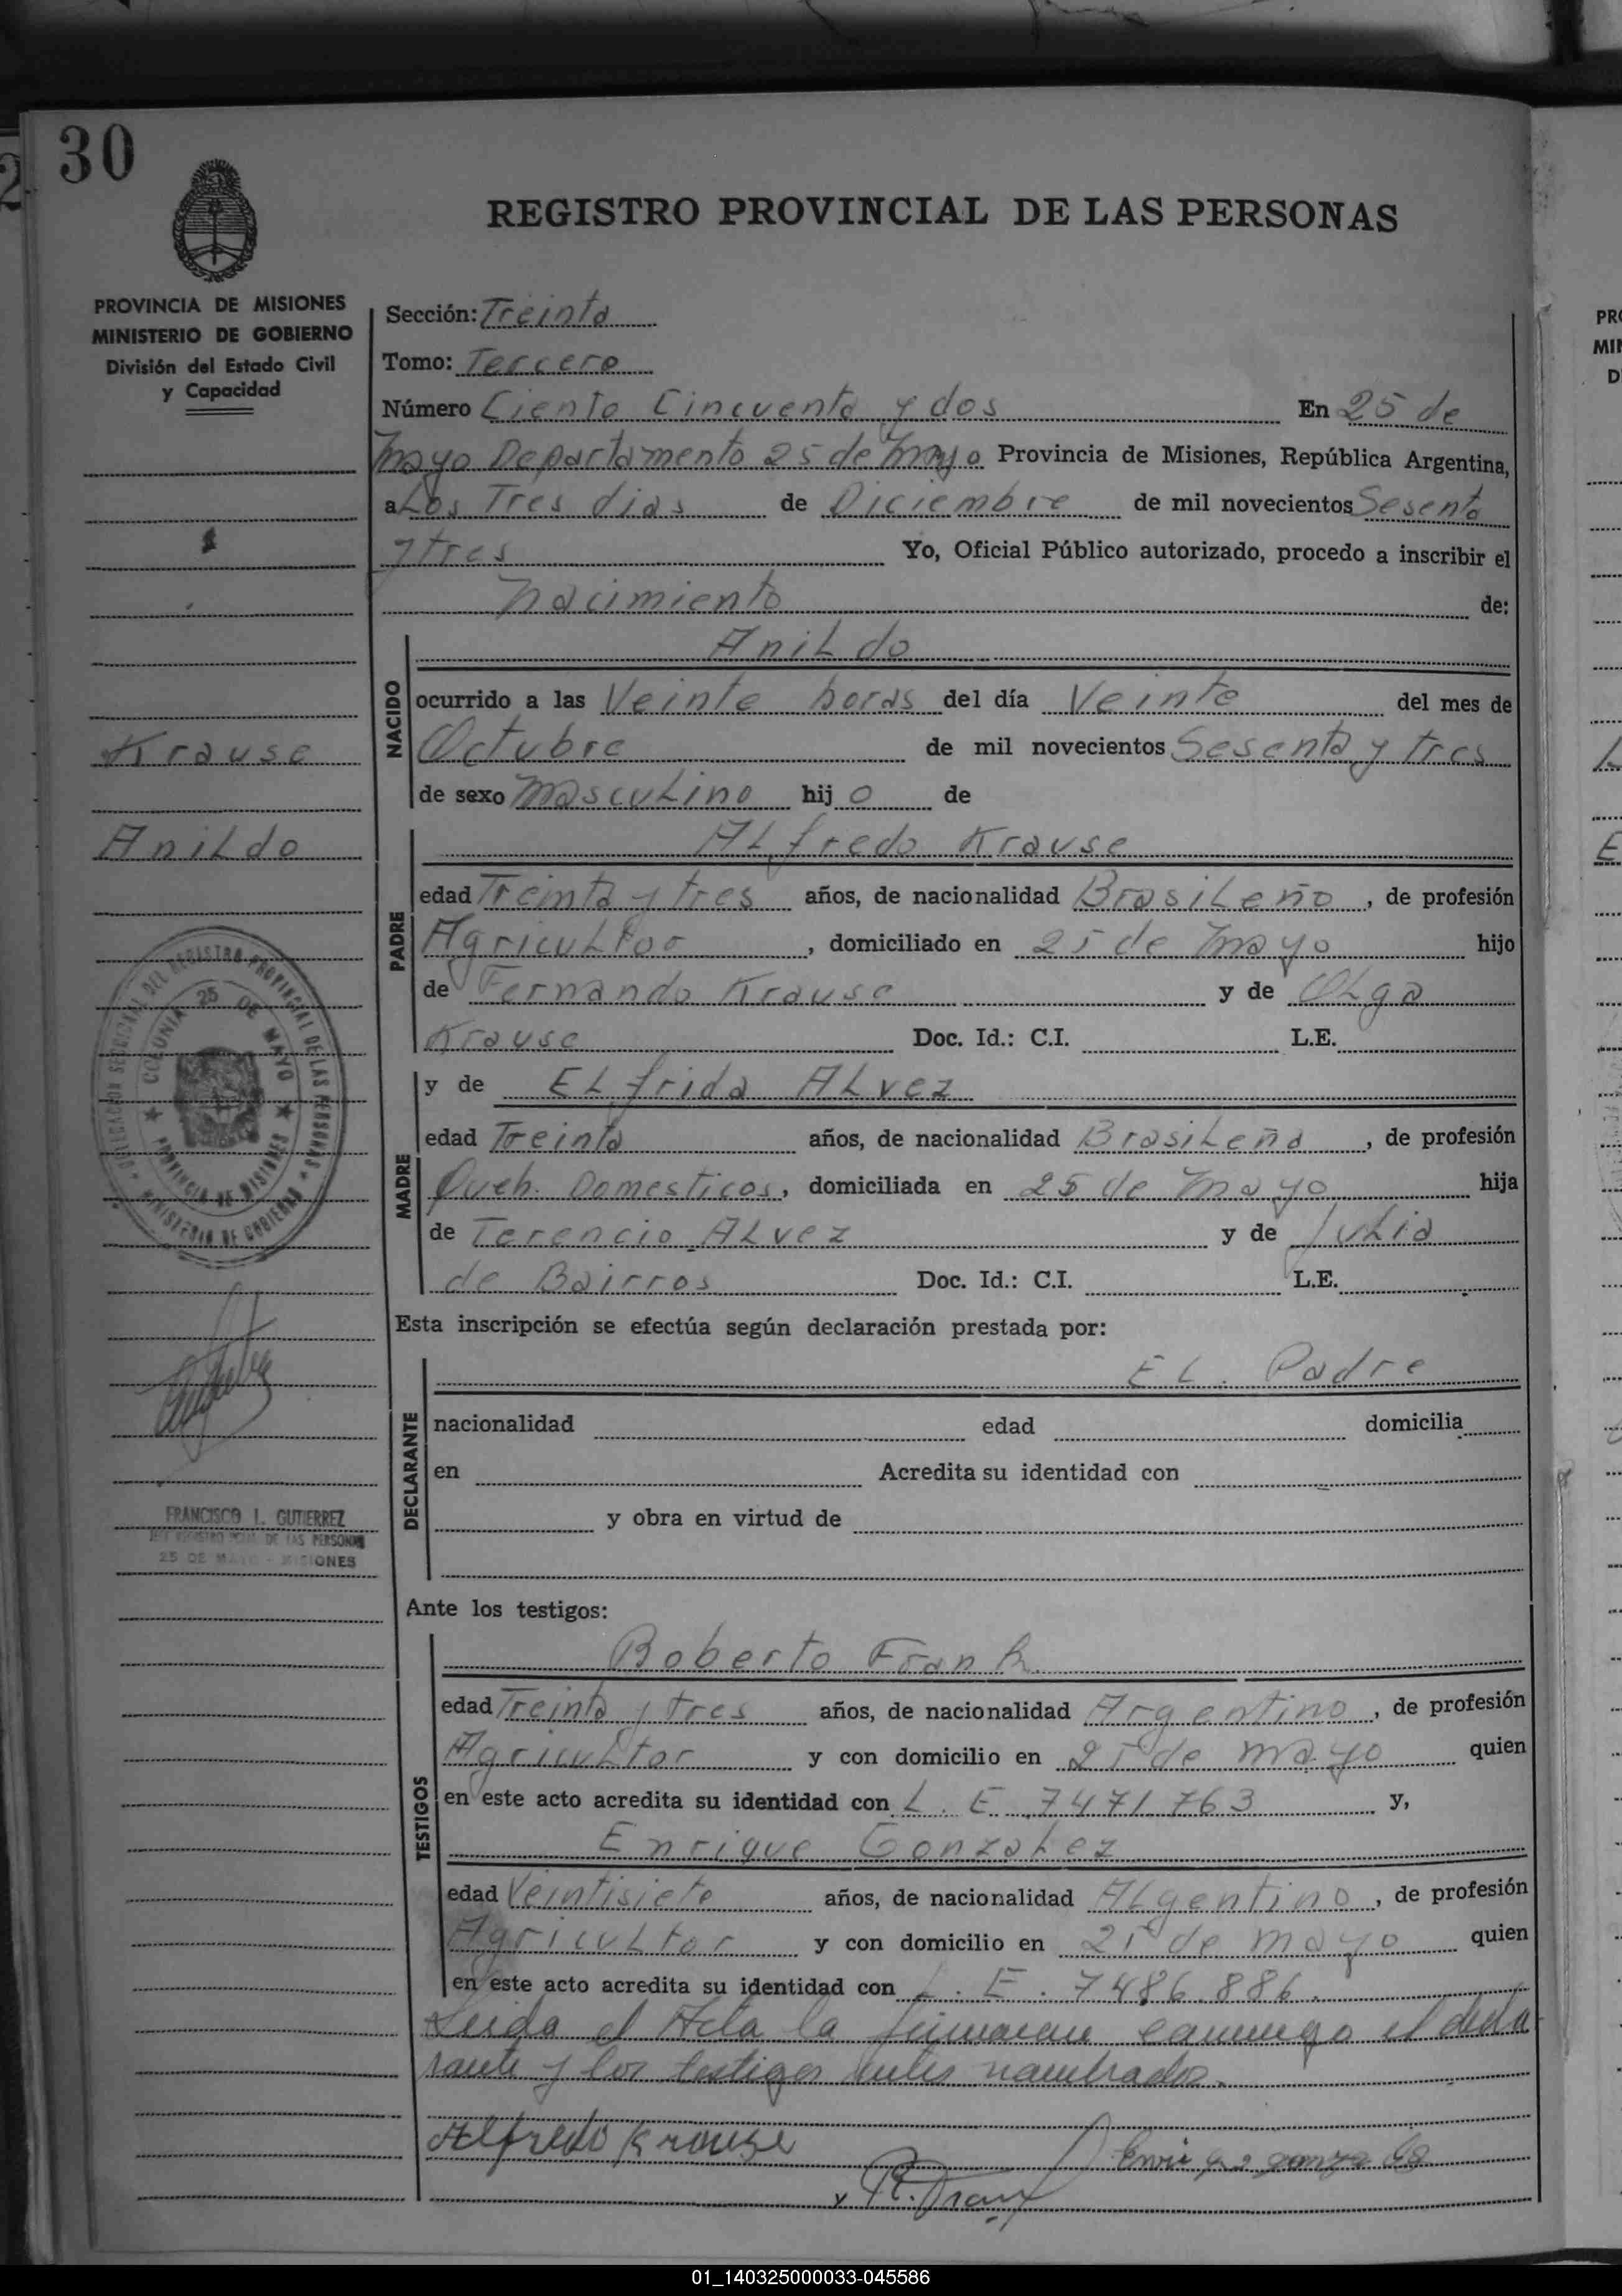 30
REGISTRO PROVINCIAL DE LAS PERSONAS
PROVINCIA DE MISIONES
MINISTERIO DE GOBIERNO
División del Estado Civil
y Capacidad
Krause
Anildo
DELEGACION SECCIONAL DEL REGISTRO PROVINCIAL DE LAS PERSONAS
MINISTERIO DE GOBIERNO
COLONIA 25 DE MAYO
PROVINCIA DE MISIONES
FRANCISCO I. GUTIERREZ
JEFE REGISTRO PCIAL. DE LAS PERSONAS
25 DE MAYO - MISIONES
Sección: Treinta
Tomo: Tercero
Número Ciento Cincuenta y dos En 25 de
Mayo Departamento 25 de Mayo Provincia de Misiones, República Argentina,
a Los Tres dias de Diciembre de mil novecientos Sesenta
y tres Yo, Oficial Público autorizado, procedo a inscribir el
Nacimiento de:
NACIDO
AniLdo
ocurrido a las Veinte horas del día Veinte del mes de
Octubre de mil novecientos Sesenta y tres
de sexo MascuLino hij o de
PADRE
ALfredo Krause
edad Treinta y tres años, de nacionalidad BrasiLeño, de profesión
AgricuLtor, domiciliado en 25 de Mayo hijo
de Fernando Krause y de OLga
Krause Doc. Id.: C.I. L.E.
MADRE
y de ELfrida ALvez
edad Treinta años, de nacionalidad BrasiLeña, de profesión
Queh. Domesticos, domiciliada en 25 de Mayo hija
de Terencio ALvez y de JuLia
de Bairros Doc. Id.: C.I. L.E.
Esta inscripción se efectúa según declaración prestada por:
DECLARANTE
EL. Padre
nacionalidad edad domicilia
en Acredita su identidad con
y obra en virtud de
Ante los testigos:
TESTIGOS
Roberto Frank.
edad Treinta y tres años, de nacionalidad Argentino, de profesión
AgricuLtor y con domicilio en 25 de mayo quien
en este acto acredita su identidad con L. E. 7471763 y,
Enrique GonzaLez
edad Veintisiete años, de nacionalidad ALgentino, de profesión
AgricuLtor y con domicilio en 25 de mayo quien
en este acto acredita su identidad con L. E. 7486.886.
Leida el Acta la firmaran conmigo el decla
rante y los testigos antes nombrados.
Alfredo Krause
Enrique gonzalez
x R. Frank
01_140325000033-045586